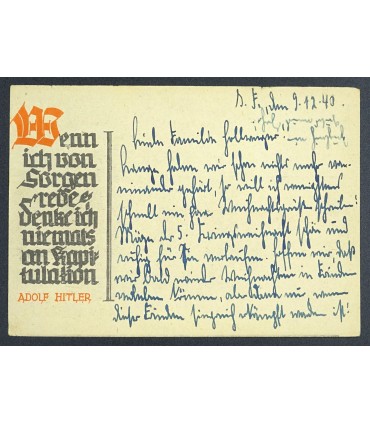 Wenn
ich von
Sorgen
rede
denke ich
niemals
an Kapi
tulation
ADOLF HITLER
den 9.12.40.
Liebe Familie
haben wir schon nichts mehr von
einander gehört, so will ich wenigstens
schnell ein paar Weihnachtsgrüße
Möge die 5. Kriegsweihnacht schön und
ruhig für Sie verlaufen. Hoffen wir, daß
wir bald wieder Weihnachten in Frieden
erleben können, aber dann nur, wenn
dieser Frieden siegreich erkämpft worden ist!